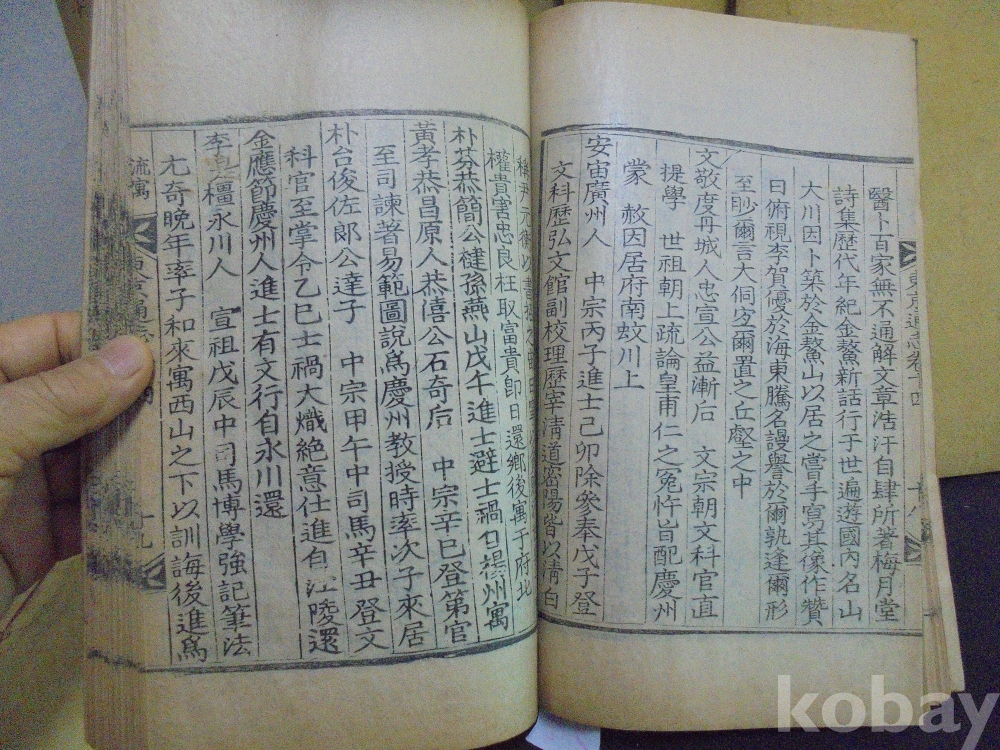 醫卜百家無不通解文章浩汗自肆所著梅月堂
詩集歷代年紀金鰲新話行于世遍遊國內名山
大川因卜築於金鰲山以居之嘗手寫其像作贊
曰俯視李賀優於海東騰名謾譽於爾孰逢爾形
至眇爾言大侗宜爾置之丘壑之中
文敬度丹城人忠宣公益漸后 文宗朝文科官直
提學 世祖朝上疏論皇甫仁之冤忤旨配慶州
蒙 赦因居府南蚊川上
安宙廣州人 中宗丙子進士己卯除參奉戊子登
文科歷弘文館副校理歷宰清道密陽皆以清白
東京通志卷十四
十八
稱尹元衡以書招之
權貴害忠良枉取富貴卽日還鄉後寓于府北
朴芬恭簡公楗孫燕山戊午進士避士禍自楊州寓
黃孝恭昌原人恭僖公石奇后 中宗辛巳登第官
至司諫著易範圖說爲慶州教授時率次子來居
朴台俊佐郎公達子 中宗甲午中司馬辛丑登文
科官至掌令乙巳士禍大熾絕意仕進自江陵還
金應節慶州人進士有文行自永川還
李 橿永川人 宣祖戊辰中司馬博學強記筆法
尤奇晚年率子和來寓西山之下以訓誨後進爲
流寓
十九
kobay